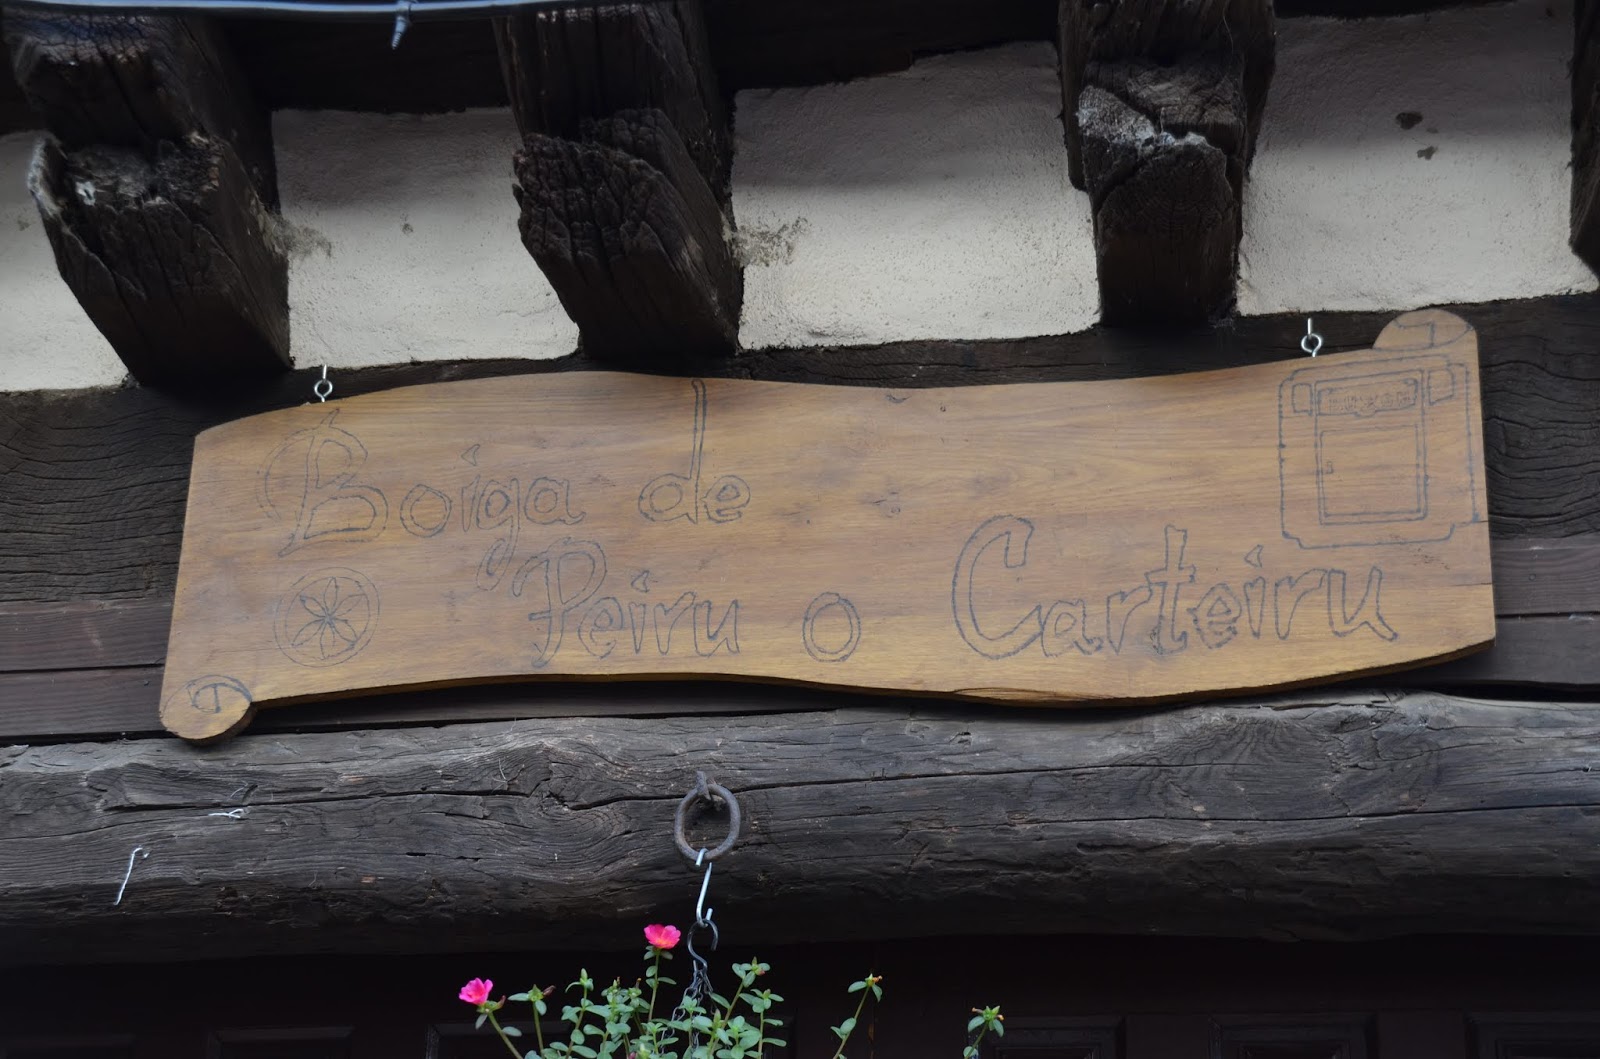 Boiga de
Peiru o Carteiru
BUZON